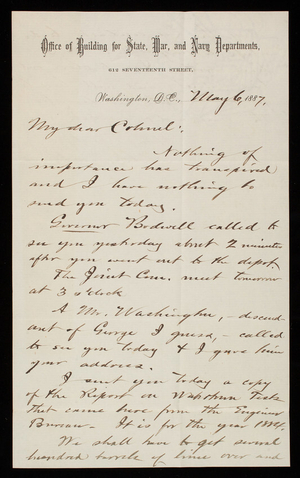 Office of Building for State, War, and Navy Departments,
612 SEVENTEENTH STREET,
Washington, D.C., May 6, 1887.
My dear Colonel:
Nothing of
importance has transpired
and I have nothing to
send you today.
Governor Bodwell called to
see you yesterday about 2 minutes
after you went out to the depot.
The Joint Com. meet tomorrow
at 3 o'clock
A Mr. Washington, - descend-
ant of George I guess, - called
to see you today & I gave him
your address.
I sent you today a copy
of the Report on
that came here from the Engineer
Bureau. - It is for the year 1884.
We shall have to get several
hundred barrels of lime over and